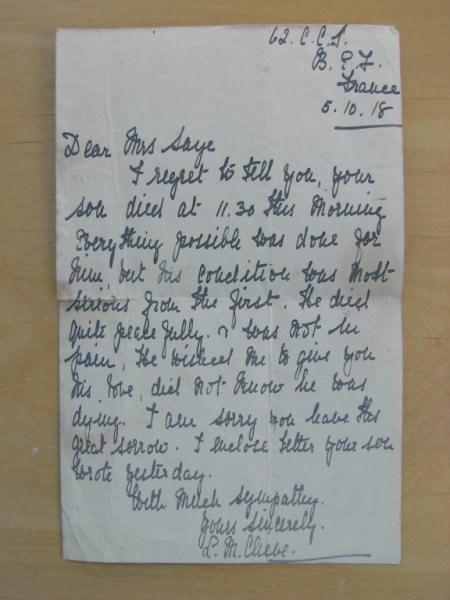 62. C.C.S.
B.E.F.
France
5.10.18
Dear Mrs Saye
I regret to tell you, your
son died at 11.30 this Morning
Everything possible was done for
him, but his condition was most
serious from the first. He died
quite peacefully. & was not in
pain, He wished me to give you
his love, did not know he was
dying. I am sorry you have this
great sorrow. I enclose letter your son
wrote yesterday.
With much sympathy.
Yours sincerely.
L. M.